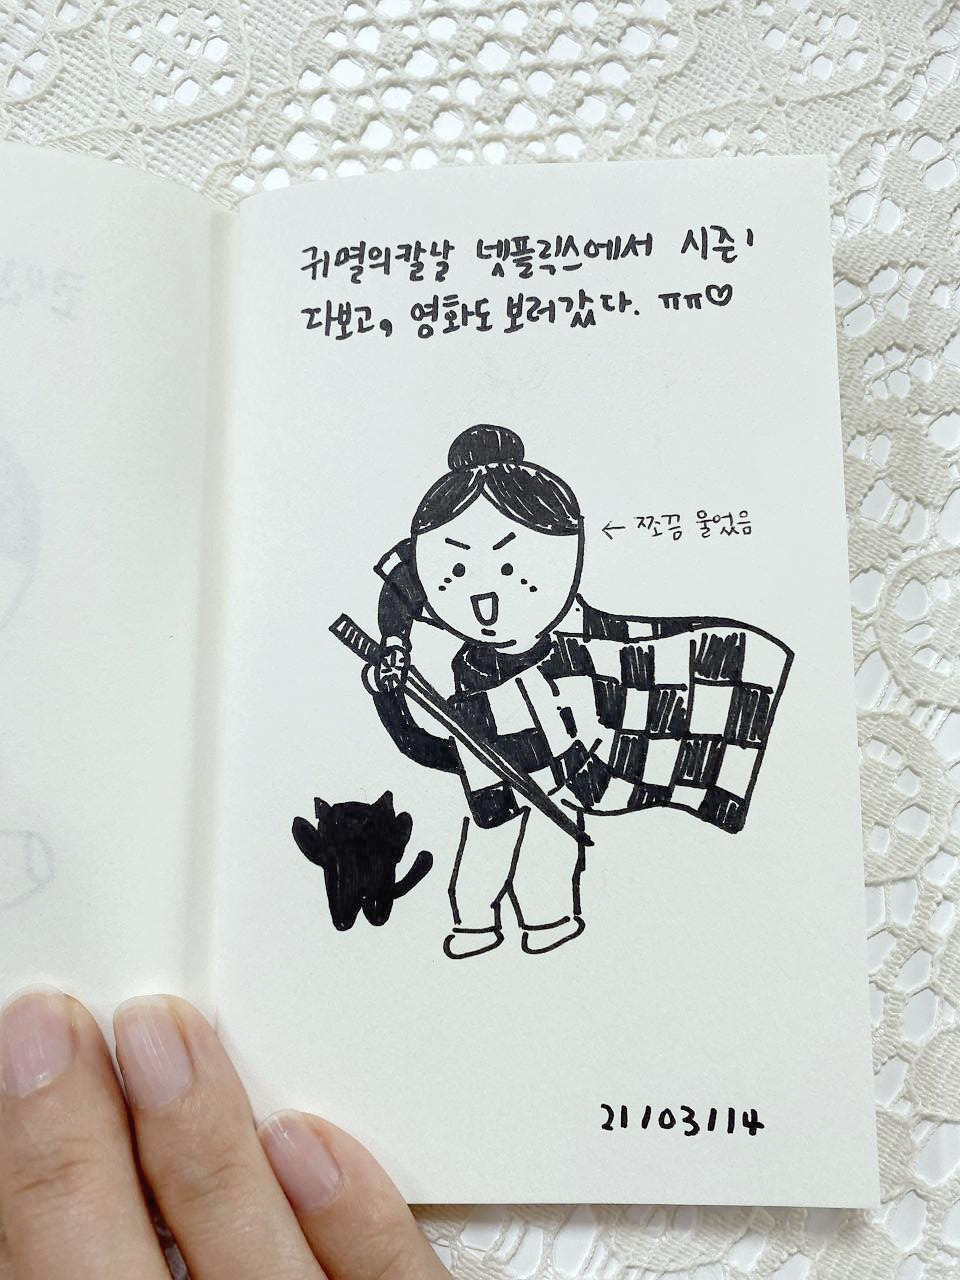 귀멸의칼날 넷플릭스에서 시즌1
다보고, 영화도 보러갔다. ㅠㅠ♡
← 쪼끔 울었음
21/03/14